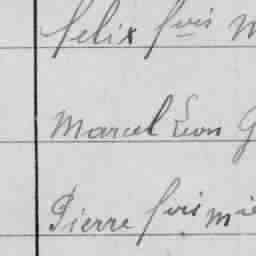 Felix fois M
Marcel Léon G
Pierre fois Mie